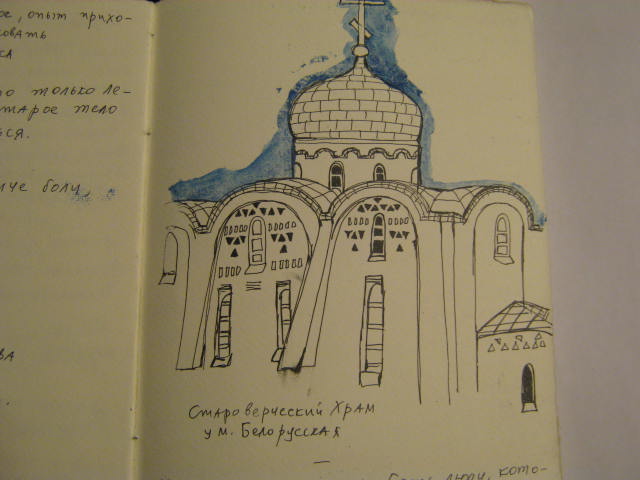 е, опыт прихо-
овать
ка
о только ле-
тарое тело
ься.
че болу
ва
Староверческий Храм
у м. Белорусская
люди, кото-